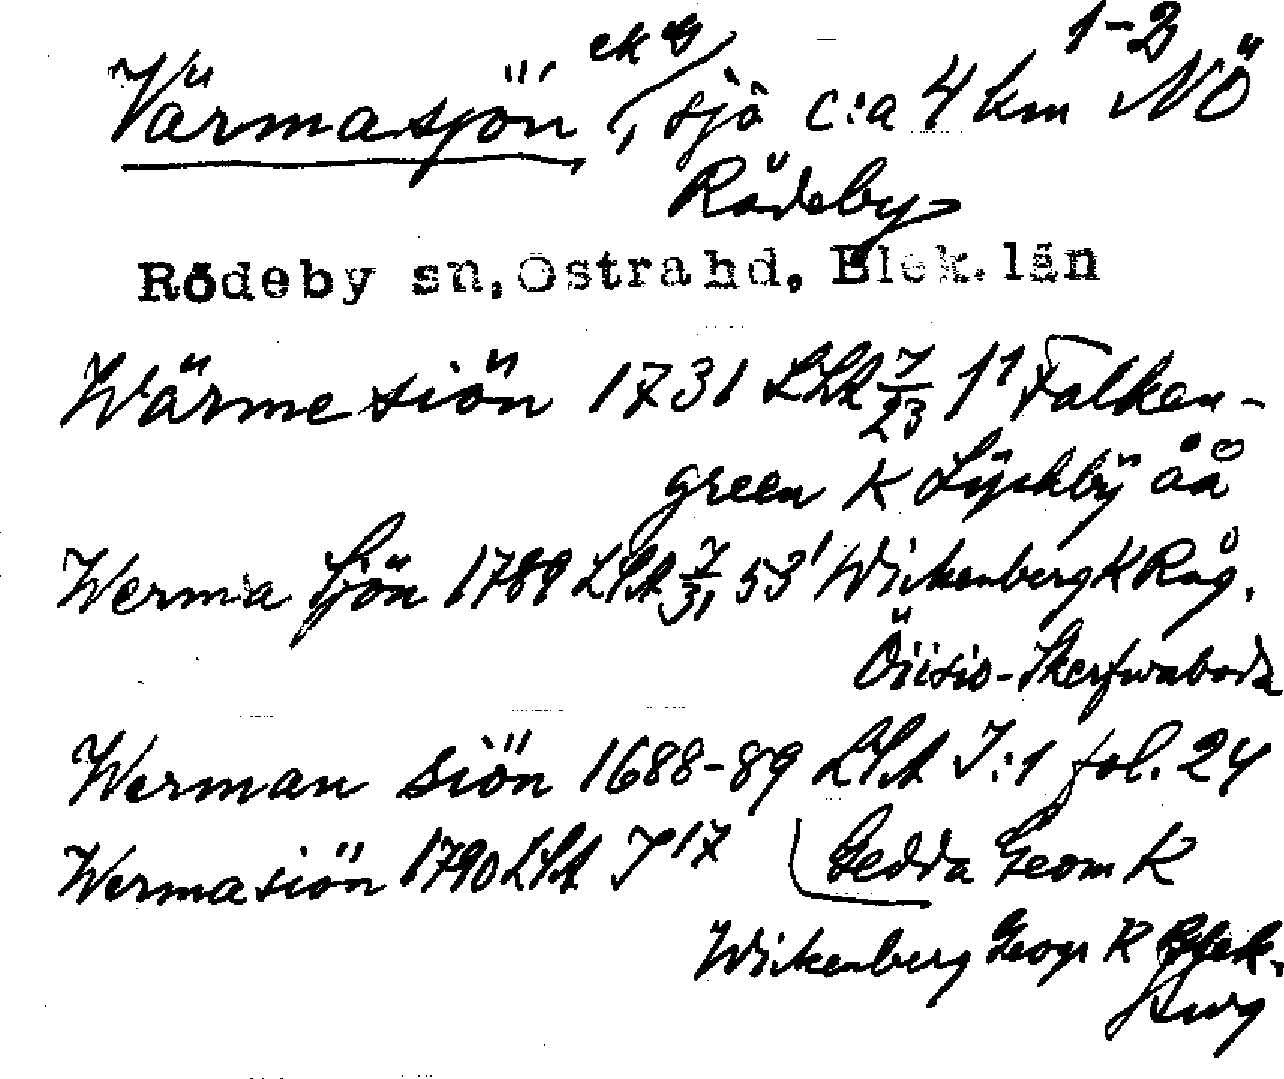 Värmasjön ek G, sjö c:a 4 km NÖ 1-2
Rödeby
Rödeby sn, Östra hd, Blek. län
Wärme siön 1731 LSA 7/23 1¹ Falken-
green K Lÿckbÿ åå
Werma Sjön 1789 LSA 7/31 53¹ Wickenberg K Råg.
Öiisio-Skerfwaboda
Werman siön 1688-89 LSA I:1 fol. 24
Wermasiön 1790 LSA J 17 Gedda Geom K
Wickenberg Geogr K Blek.